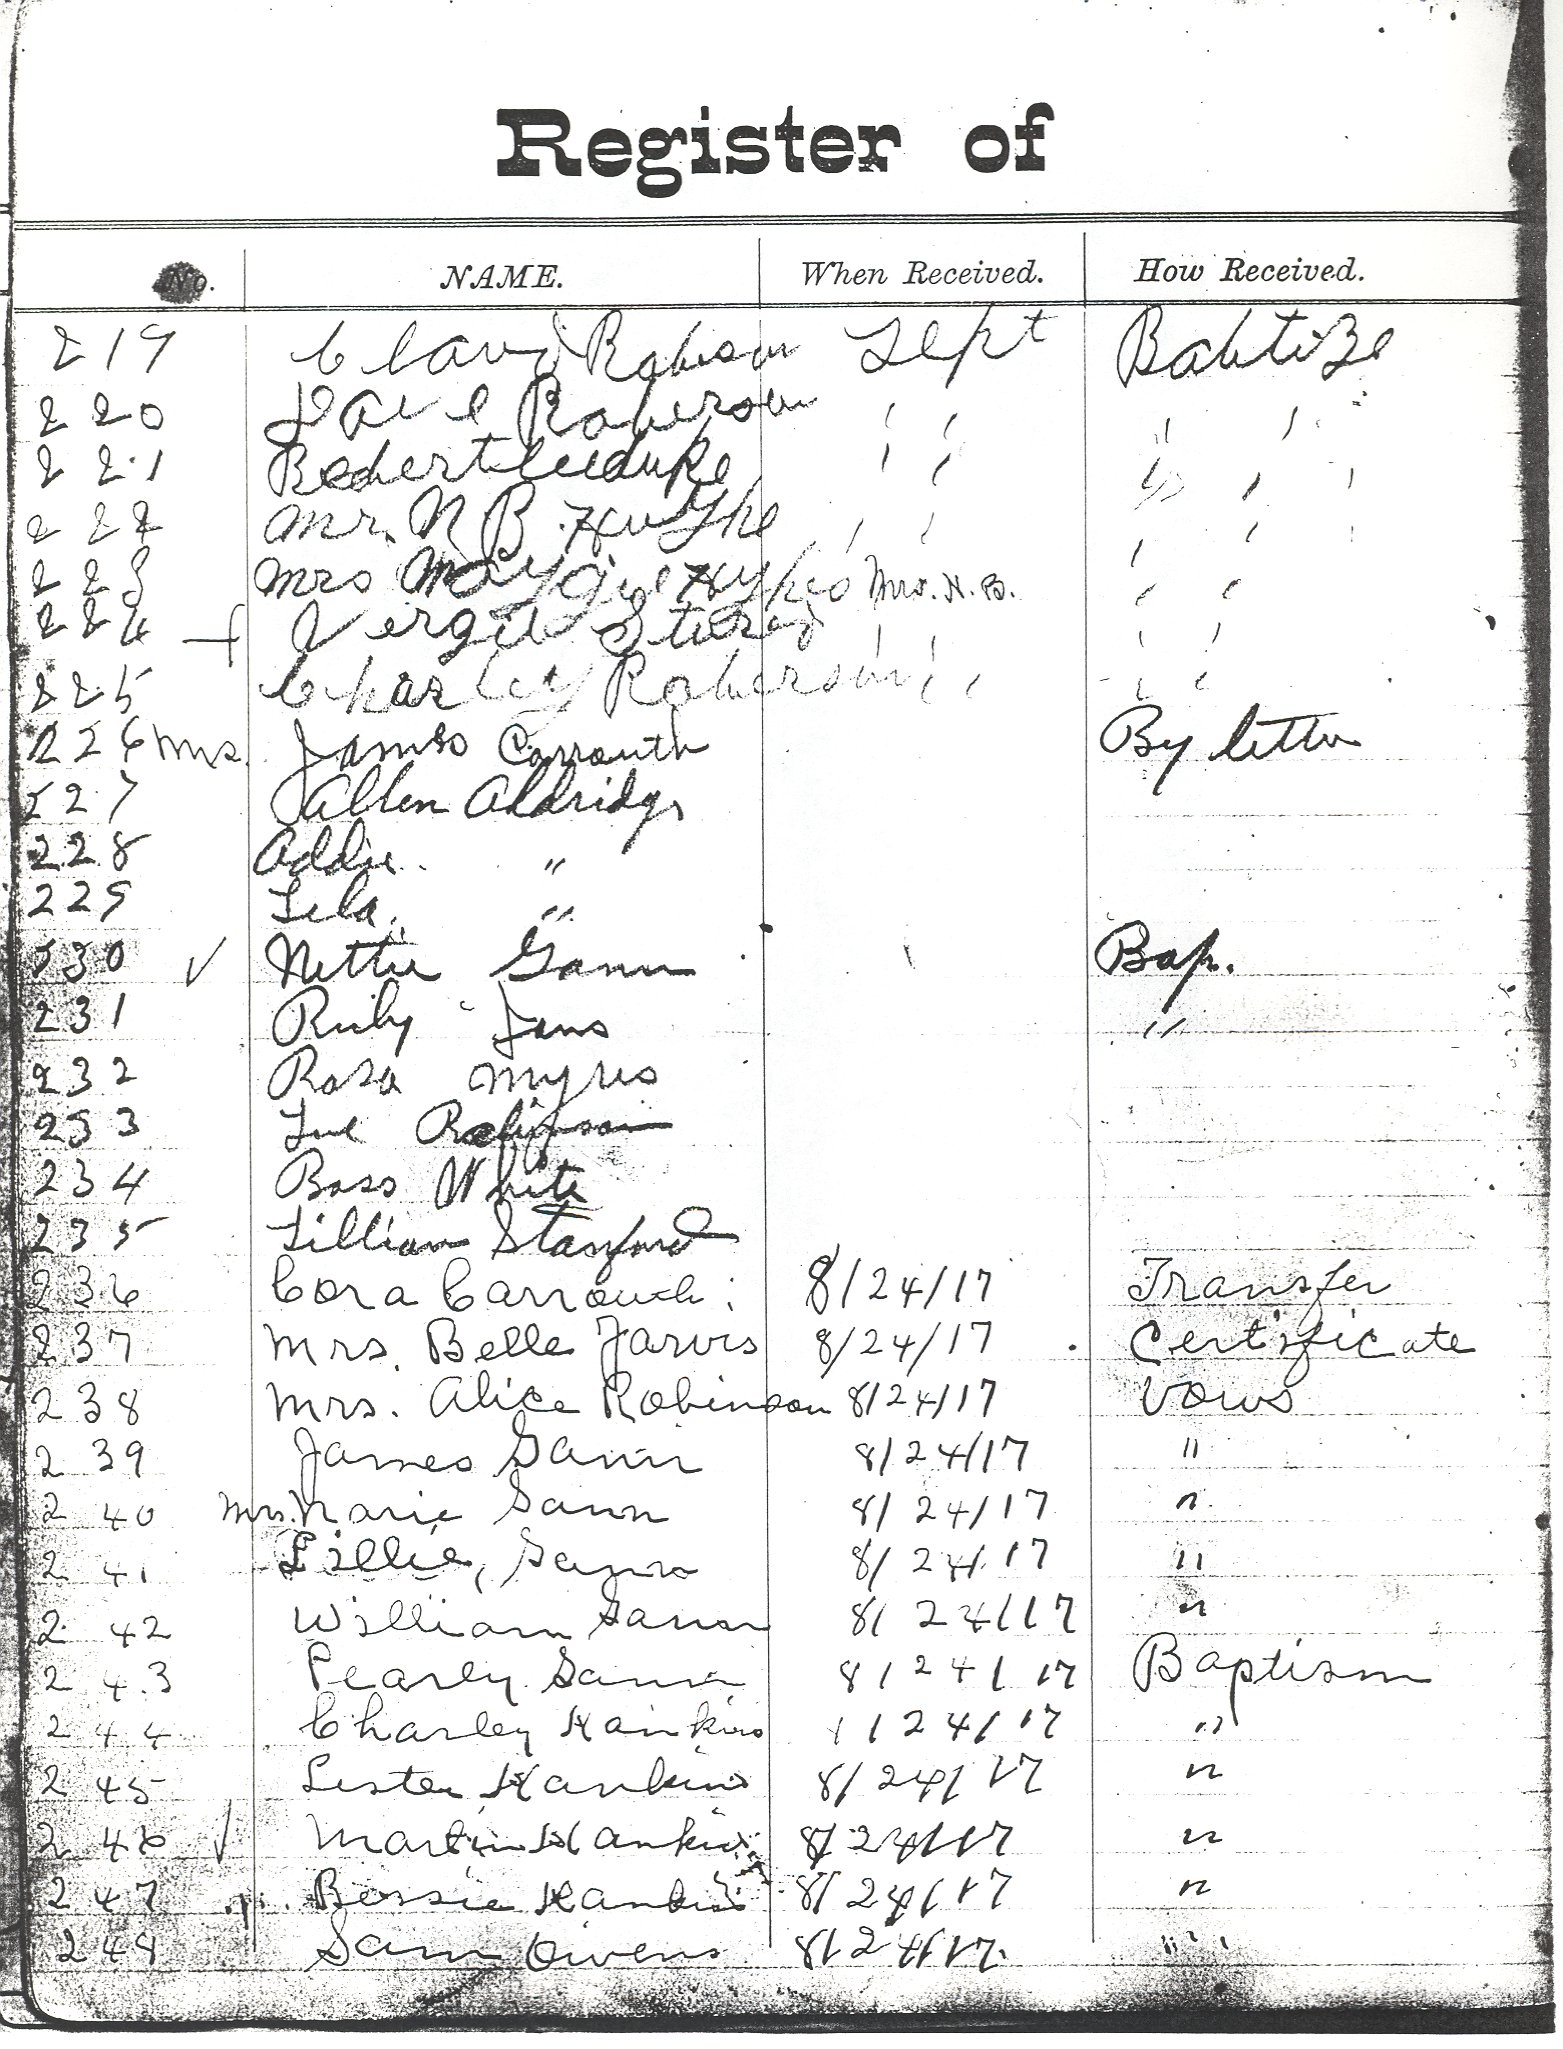 Register of
No. NAME. When Received. How Received.
219 Sept Babtize
220 Roberson " "
221 " "
222 Mr. N B. " "
223 Mrs Mrs. N. B. " "
224 Vergil " "
225 Charley Roberson " " " "
226 Mrs. James Carrouth By letter
227 Allen Aldridge
228 Addie "
229 Lela "
230 ✓ Nettie Gann Bap.
231 Ruby "
232 Rosa Myres
233
234 Boss White
235 Lillian Stanford
236 Cora Carrouth 8/24/17 Transfer
237 Mrs. Belle Jarvis 8/24/17 Certificate
238 Mrs. Alice Robinson 8/24/17 Vows
239 James Gann 8/24/17 "
240 Mrs. Marie Gann 8/24/17 "
241 Lillie, Gann 8/24/17 "
242 William Gann 8/24/17 "
243 Pearly Gann 8/24/17 Baptism
244 Charley Hankins /24/17 "
245 Lester Hankins 8/24/17 "
246 ✓ Martin Hankins 8/24/17 "
247 Bessie Hankins 8/24/17 "
248 Sam Owens 8/24/17 "